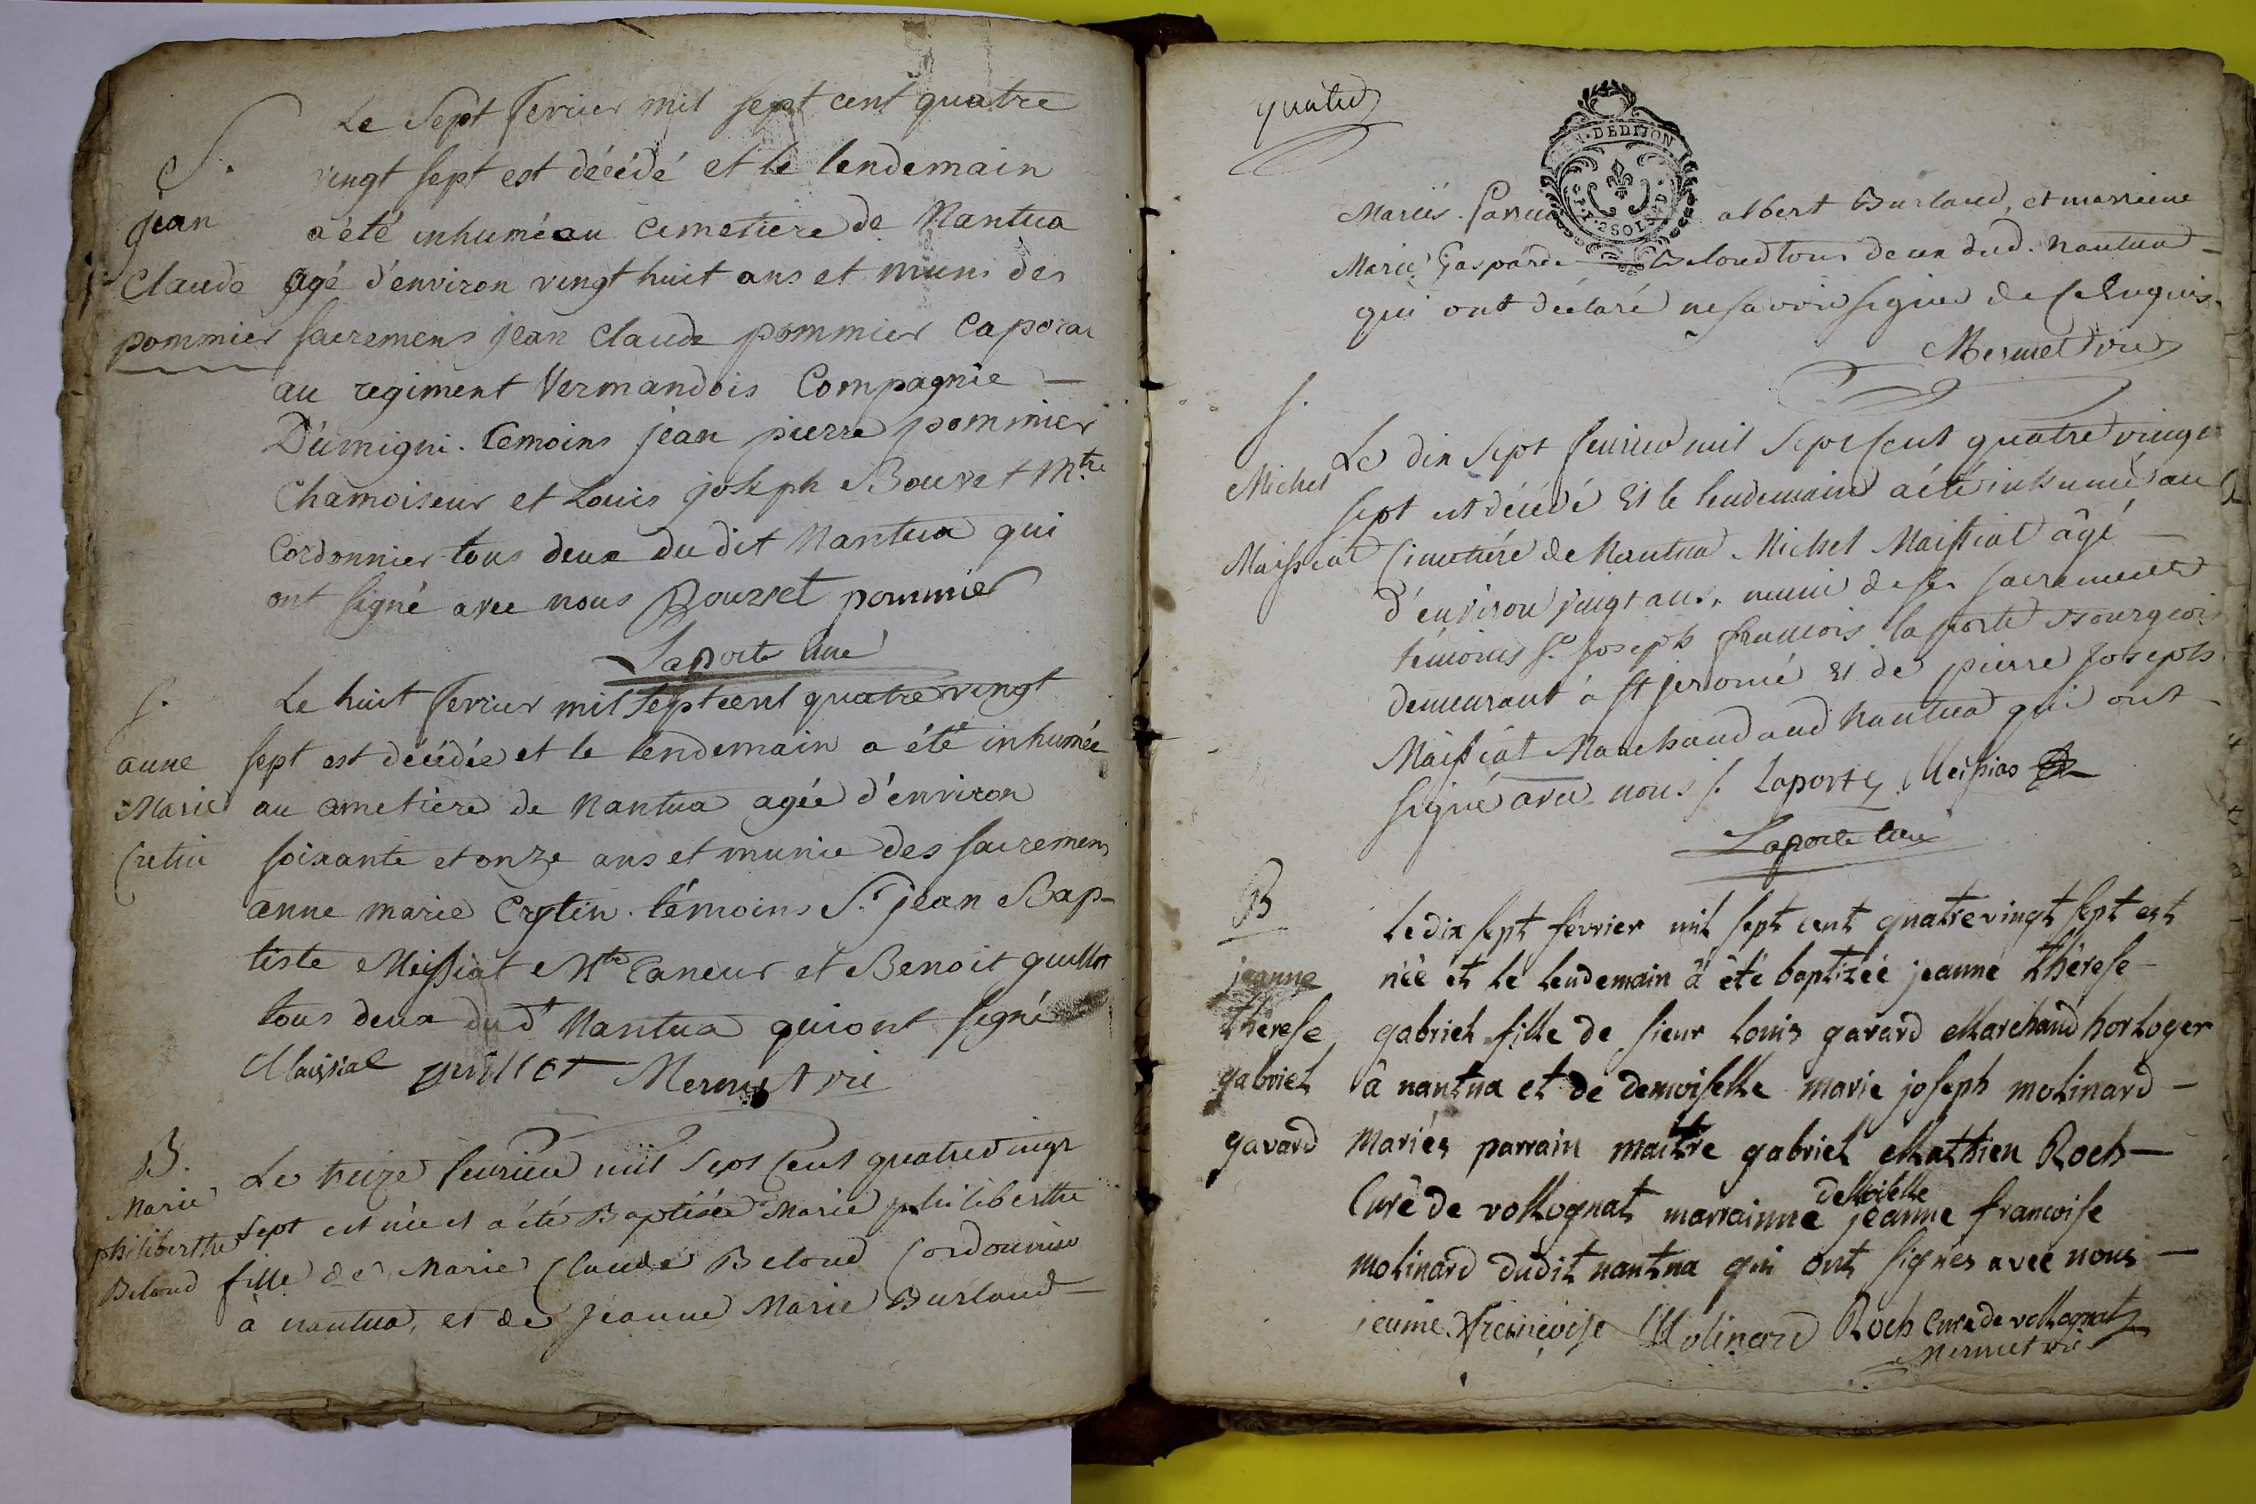 Le Sept fevrier mil sept cent quatre
S.
vingt sept est décédé et le lendemain
jean
a été inhumé au Cemetiere de Nantua
Claude
agé d'environ vingt huit ans et muni des
pommier
sacremens jean Claude pommier Caporal
au regiment Vermandois Compagnie —
Dumigni. temoins jean pierre pommier
Chamoiseur et Louis joseph Bouvet Mtre
Cordonnier tous deux du dit Nantua qui
ont signé avec nous Bouvet pommier
Laporte Curé
S.
Le huit fevrier mil sept cent quatre vingt
anne
sept est décédée et le lendemain a été inhumée
Marie
au cemetiere de Nantua agée d'environ
Cretin
soixante et onze ans et munie des sacremens
anne marie Cretin. témoins Sr jean Bap-
tiste Meissiat Mtre taneur et Benoit guillot
tous deux du dt Nantua qui ont signé
Maissiat guillot Mermet vic
B.
Le treize fevrier mil sept cent quatre vingt
Marie
philiberthe
sept est née et a été Baptisée Marie philiberthe
Beloud
fille de Marie Claude Beloud Cordonnier
à nantua, et de jeanne Marie Burlaud —
quatre
GEN·DE DIJON
2 SOLS
Mariés. parrain albert Burlaud, et marreine
Marie Gasparde Beloud tous deux dud. nantua —
qui ont déclaré ne savoir signer de ce Enquis.
Mermet vic
S.
Le dix sept fevrier mil sept cent quatre vingt
Michel
sept est décédé Et le lendemain a été inhumé au
Maissiat
Cimetiére de Nantua Michel Maissiat âgé —
d'environ vingt ans, muni de ses sacrements
témoins Sr. joseph françois laporte Bourgeois
demeurant à St jerome Et de pierre joseph
Maissiat Marchand aud nantua qui ont —
signé avec nous j. Laporte Meissiat
Laporte Curé
B
Le dix sept fevrier mil sept cent quatre vingt sept est
jeanne
née et le lendemain â été baptizée jeanne thérese —
therese
gabriel fille de sieur Louis gavard Marchand horloger
gabriel
â nantua et de demoiselle marie joseph molinard —
gavard
Mariés parrain maitre gabriel Mathieu Roch —
deMoiselle
Curé de vollognat marrainne jeanne francoise
molinard dudit nantua qui ont signés avec nous —
jeanne francoise Molinard Roch Curé de vollognat
Mermet vic